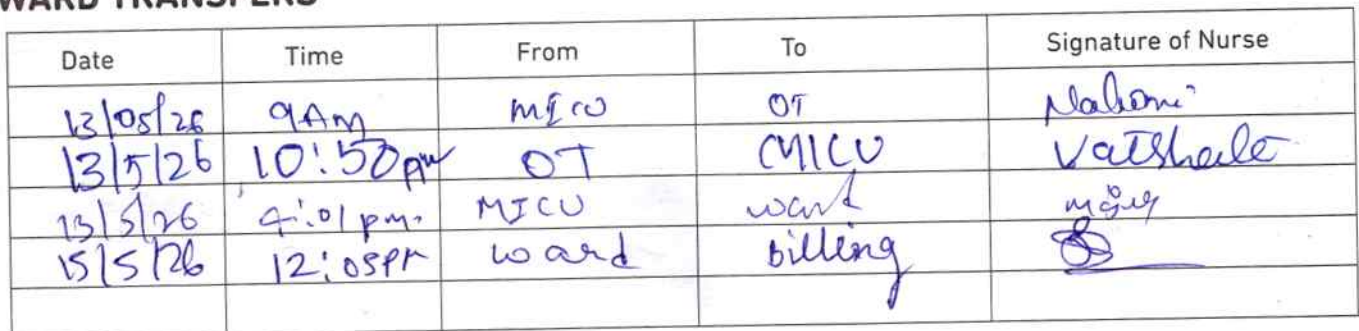 WARD TRANSFERS
Date Time From To Signature of Nurse
13/05/26 9AM MICU OT
13/5/26 10:50pm OT MICU
13/5/26 4:01 pm. MICU ward
15/5/26 12:05PM ward billing